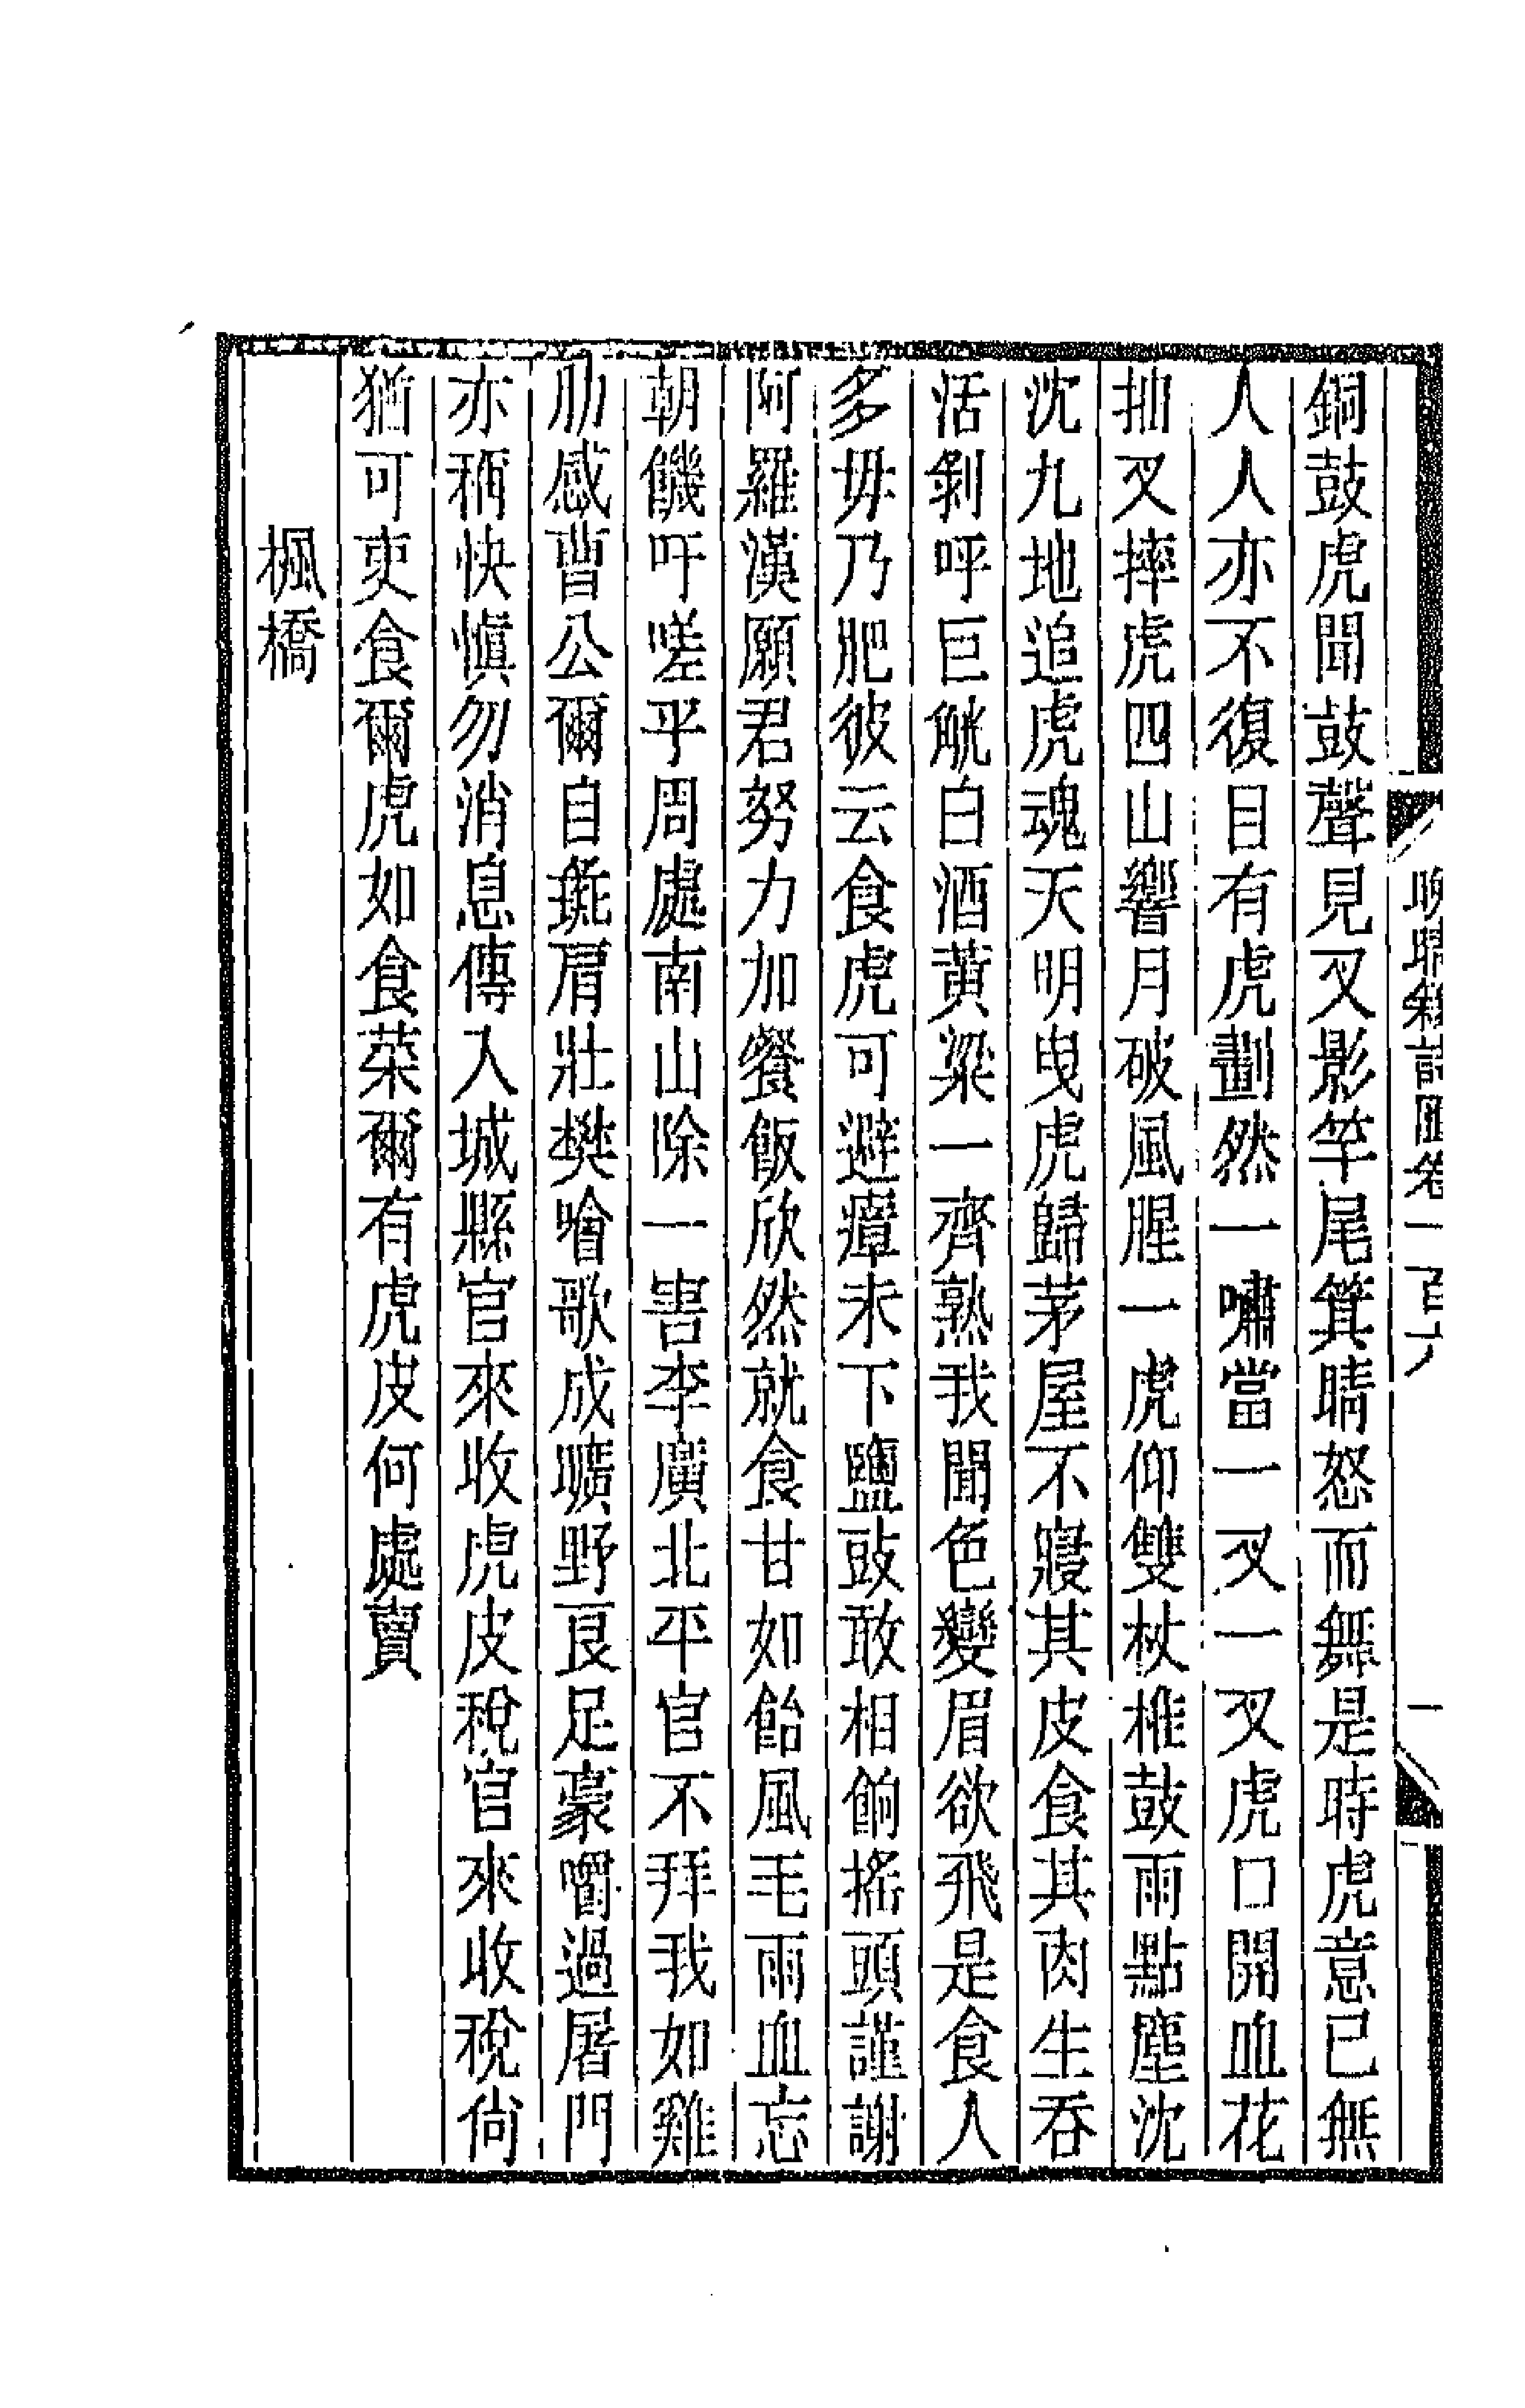 晚晴簃詩匯卷一百六 一
銅鼓虎聞鼓聲見叉影竿尾箕睛怒而舞是時虎意已無
人人亦不復目有虎劃然一嘯當一叉一叉虎口開血花
拙叉摔虎四山響月破風腥一虎仰雙杖椎鼓雨點塵沈
沈九地追虎魂天明曳虎歸茅屋不寢其皮食其肉生吞
活剝呼巨觥白酒黃粱一齊熟我聞色變眉欲飛是食人
多毋乃肥彼云食虎可避瘴未下鹽豉敢相餉搖頭謹謝
阿羅漢願君努力加餐飯欣然就食甘如飴風毛雨血忘
朝饑吁嗟乎周處南山除一害李廣北平官不拜我如雞
肋感曹公爾自彘肩壯樊噲歌成曠野良足豪嚼過屠門
亦稱快愼勿消息傳入城縣官來收虎皮稅官來收稅尙
猶可吏食爾虎如食菜爾有虎皮何處賣
楓橋